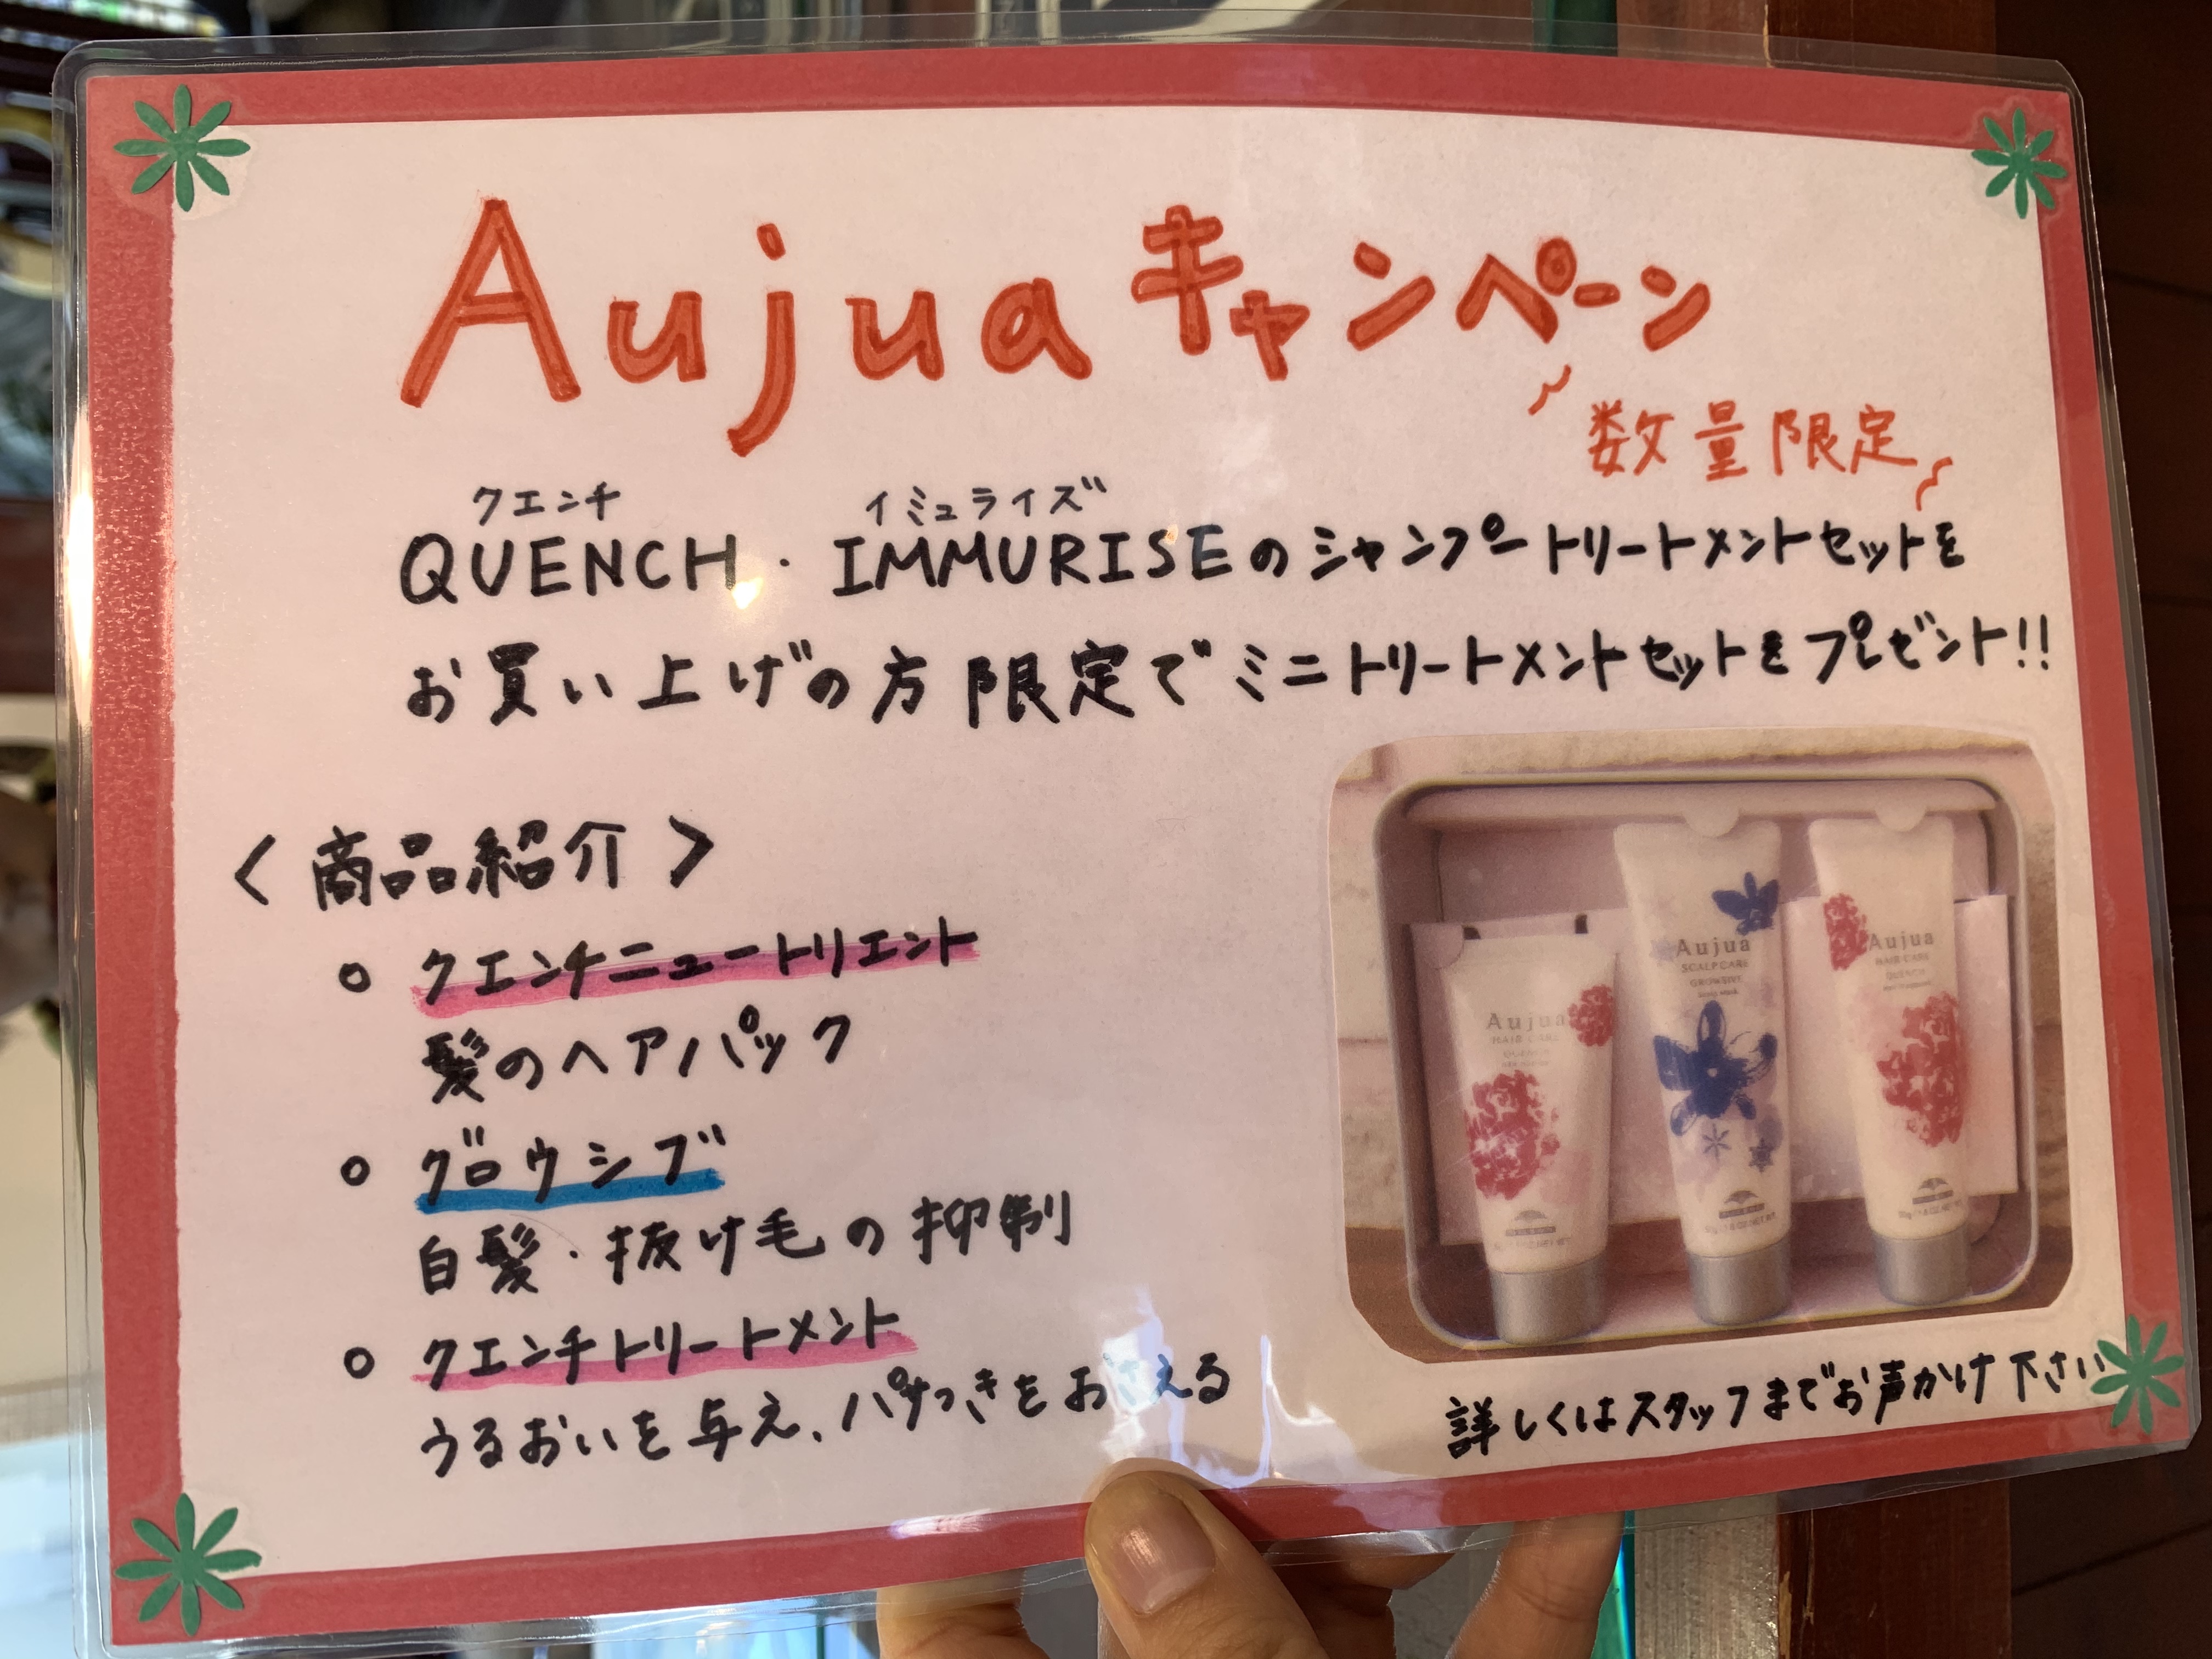 Aujuaキャンペーン
数量限定
クエンチ イミュライズ
QUENCH・IMMURISEのシャンプートリートメントセットを
お買い上げの方限定でミニトリートメントセットをプレゼント!!
<商品紹介>
○ クエンチニュートリエント
髪のヘアパック
○ グロウシブ
白髪・抜け毛の抑制
○ クエンチトリートメント
うるおいを与え、パサつきをおさえる
Aujua
HAIR CARE
QUENCH
Aujua
SCALP CARE
GROWSIVE
Aujua
HAIR CARE
QUENCH
詳しくはスタッフまでお声かけ下さい